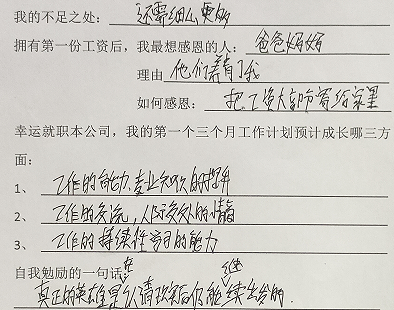 我的不足之处：还需细心更多
拥有第一份工资后，我最想感恩的人：爸爸妈妈
理由 他们养育了我
如何感恩：把工资大部分寄给家里
幸运就职本公司，我的第一个三个月工作计划预计成长哪三方
面：
1、工作的能力，专业知识的提升
2、工作的交流，人际交处的
3、工作的持续性学习的能力
自我勉励的一句话：
真正的英雄是在认清现实后仍能继续出发的.